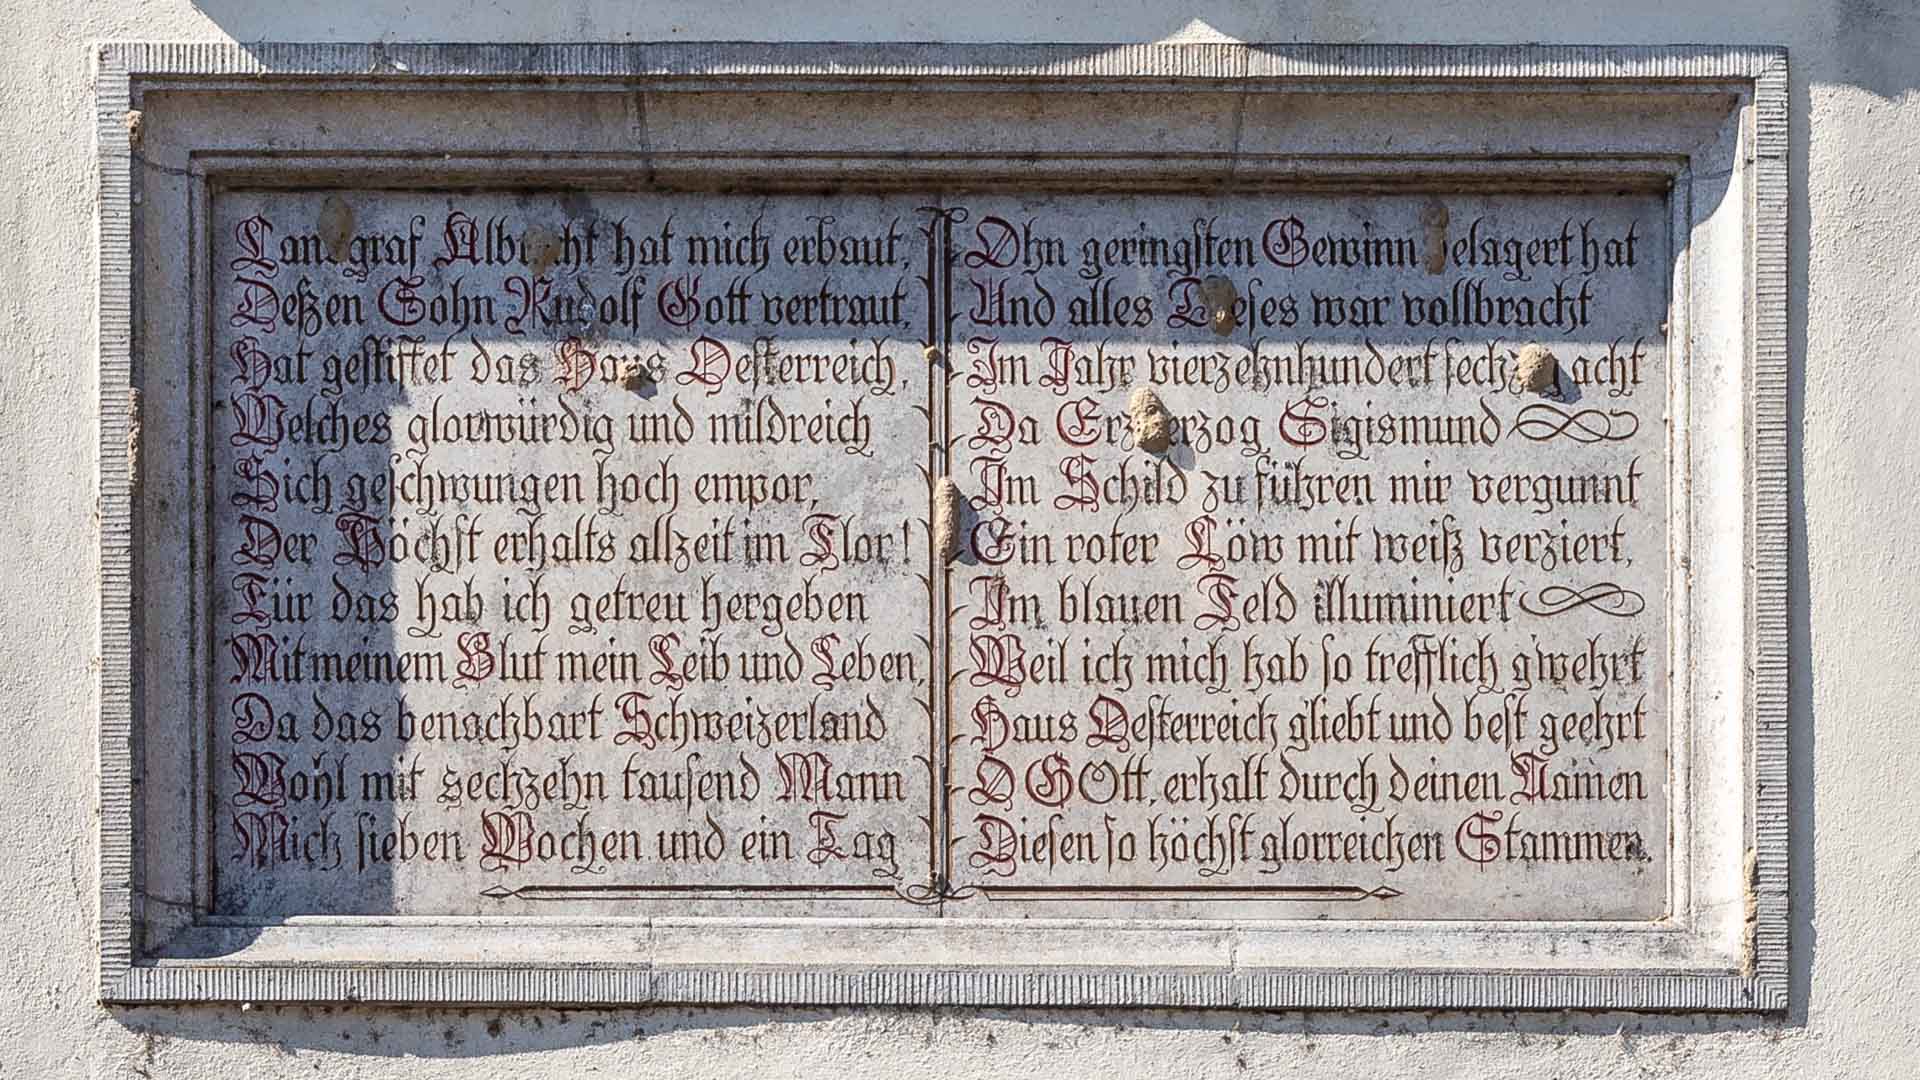 Landgraf Albrecht hat mich erbaut,
Deßen Sohn Rudolf Gott vertraut,
Hat gestiftet das Haus Oesterreich,
Welches glorwürdig und mildreich
Sich geschwungen hoch empor,
Der Höchst erhalts allzeit im Flor!
Für das hab ich getreu hergeben
Mit meinem Blut mein Leib und Leben,
Da das benachbart Schweizerland
Wohl mit sechzehn tausend Mann
Mich sieben Wochen und ein Tag
Ohn geringsten Gewinn belagert hat
Und alles Dieses war vollbracht
Im Jahr vierzehnhundert sechzig acht
Da Erzherzog Sigismund
Im Schild zu führen mir vergunnt
Ein roter Löw mit weiß verziert,
Im blauen Feld illuminiert
Weil ich mich hab so trefflich g'wehrt
Haus Oesterreich gliebt und best geehrt
O GOtt, erhalt durch deinen Namen
Diesen so höchst glorreichen Stammen.